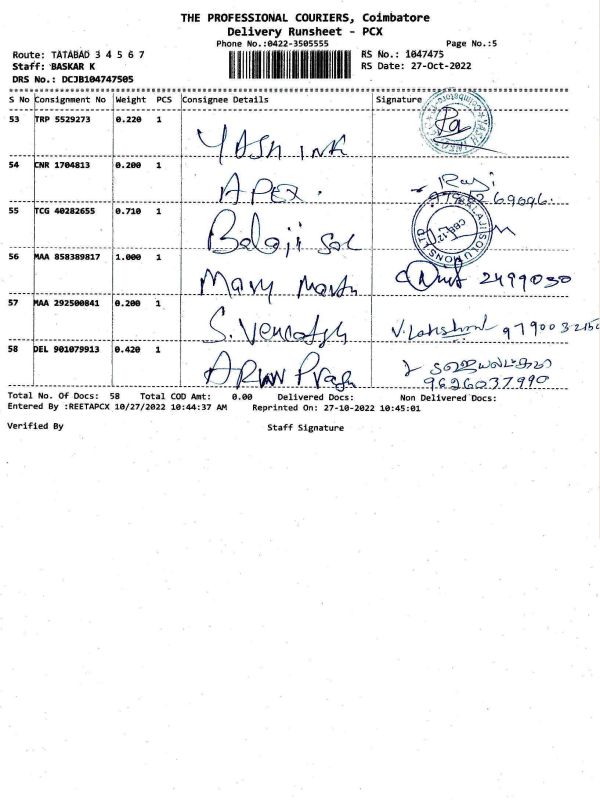 THE PROFESSIONAL COURIERS, Coimbatore
Delivery Runsheet - PCX
Phone No.:0422-3505555 Page No.:5
Route: TATABAD 3 4 5 6 7 RS No.: 1047475
Staff: BASKAR K RS Date: 27-Oct-2022
DRS No.: DCJB104747505
S No Consignment No Weight PCS Consignee Details Signature
53 TRP 5529273 0.220 1 YASH INK
54 CNR 1704813 0.200 1 APEX.
55 TCG 40282655 0.710 1 Balaji Sol
56 MAA 858389817 1.000 1 Mary 2499030
57 MAA 292500841 0.200 1
58 DEL 901079913 0.420 1 ARUN 9626037990
Total No. Of Docs: 58 Total COD Amt: 0.00 Delivered Docs: Non Delivered Docs:
Entered By :REETAPCX 10/27/2022 10:44:37 AM Reprinted On: 27-10-2022 10:45:01
Verified By Staff Signature